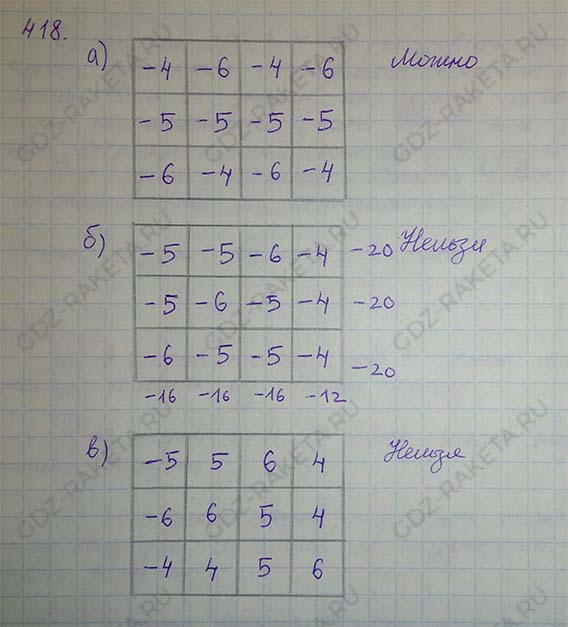 418.
а) -4 -6 -4 -6 Можно
-5 -5 -5 -5
-6 -4 -6 -4
б) -5 -5 -6 -4 -20 Нельзя
-5 -6 -5 -4 -20
-6 -5 -5 -4 -20
-16 -16 -16 -12
в) -5 5 6 4 Нельзя
-6 6 5 4
-4 4 5 6
GDZ-RAKETA.RU